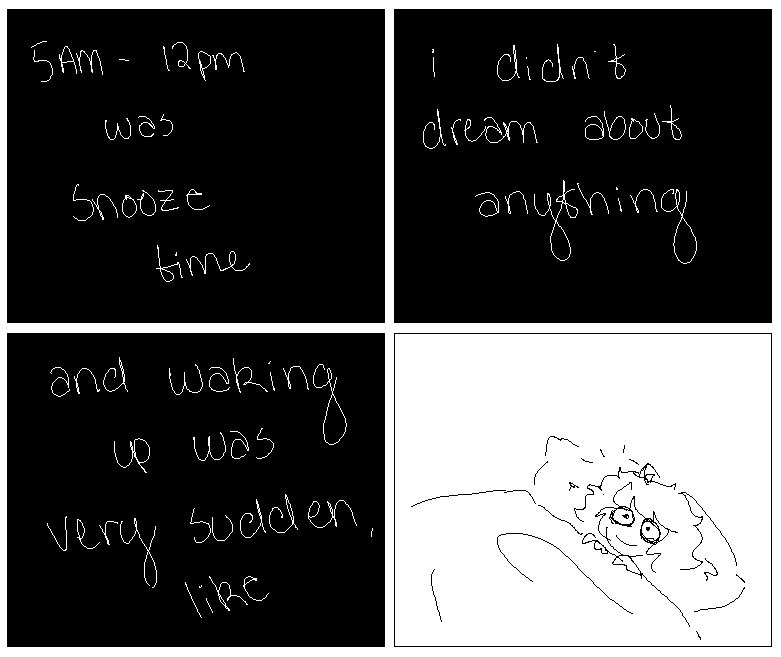 5AM - 12pm
was
snooze
time
i didn't
dream about
anything
and waking
up was
very sudden,
like